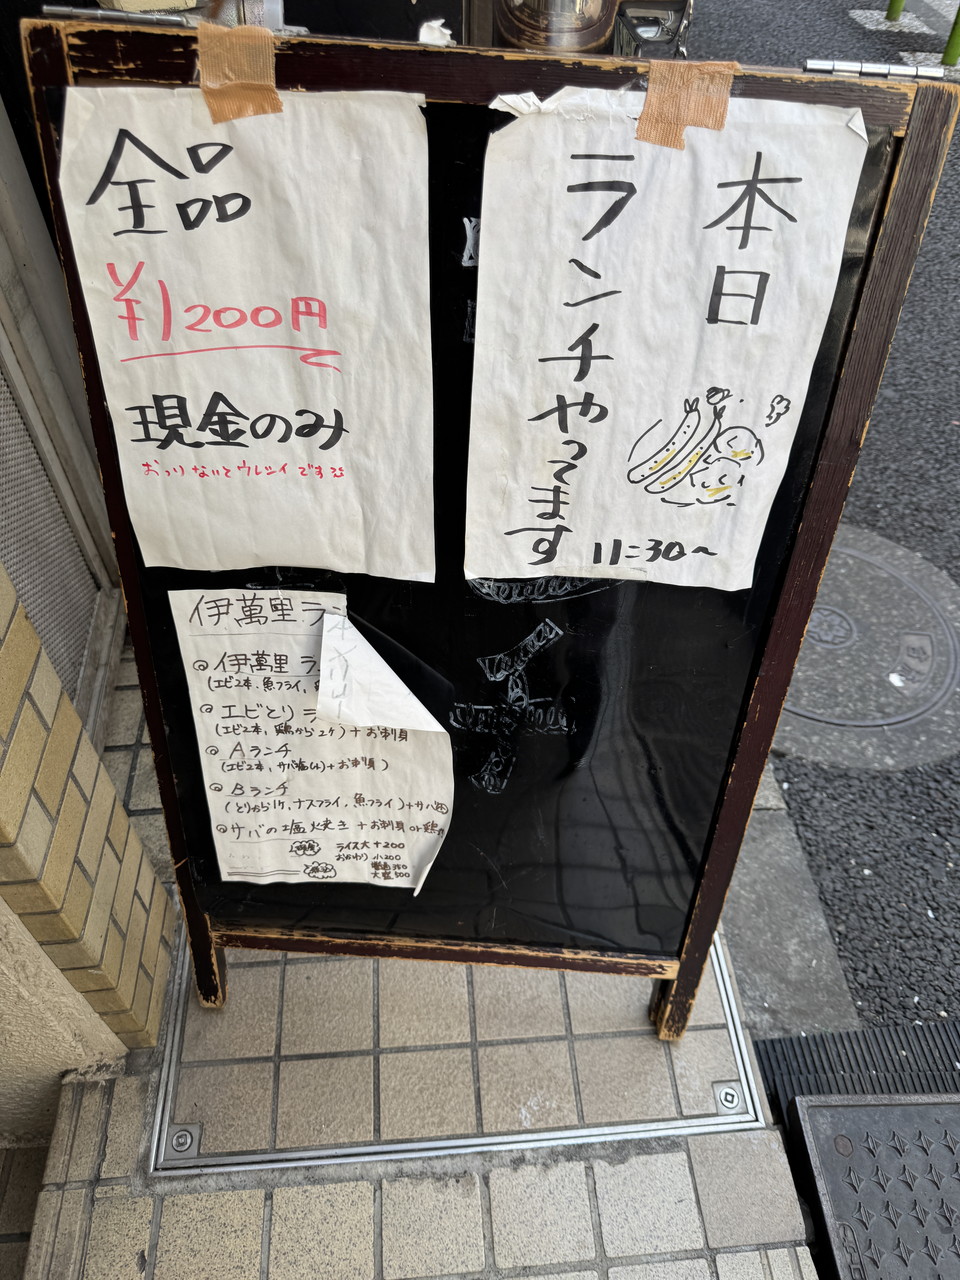 本日
ランチやってます
11:30~
全品
¥1200円
現金のみ
おつりないとウレシイです
伊萬里ラン
◎伊萬里ラ
(エビ2本、魚フライ、
◎エビとりラ
(エビ2本、鶏から2ケ)+お刺身
◎Aランチ
(エビ2本、サバ塩(小)+お刺身)
◎Bランチ
(とりから1ケ、ナスフライ、魚フライ)+サバ
◎サバの塩焼き+お刺身or鶏
ライス大+200
おかわり 小200
普通350
大盛500